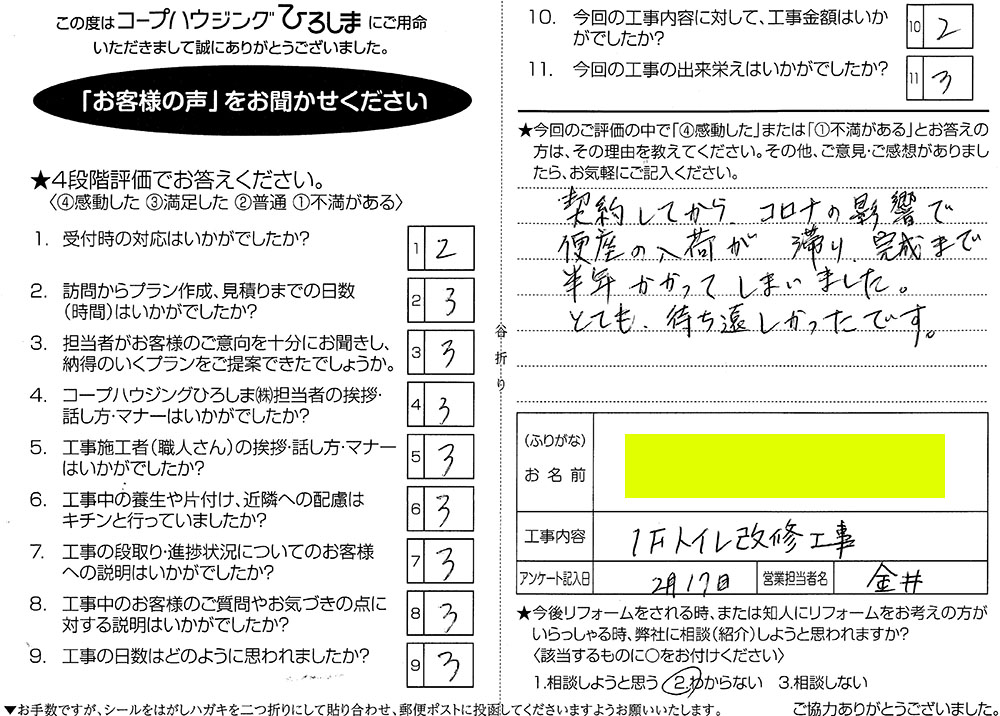 この度はコープハウジングひろしまにご用命
いただきまして誠にありがとうございました。
「お客様の声」をお聞かせください
★4段階評価でお答えください。
〈④感動した ③満足した ②普通 ①不満がある〉
1. 受付時の対応はいかがでしたか?
1 2
2. 訪問からプラン作成、見積りまでの日数
(時間)はいかがでしたか?
2 3
3. 担当者がお客様のご意向を十分にお聞きし、
納得のいくプランをご提案できたでしょうか。
3 3
4. コープハウジングひろしま㈱担当者の挨拶・
話し方・マナーはいかがでしたか?
4 3
5. 工事施工者(職人さん)の挨拶・話し方・マナー
はいかがでしたか?
5 3
6. 工事中の養生や片付け、近隣への配慮は
キチンと行っていましたか?
6 3
7. 工事の段取り・進捗状況についてのお客様
への説明はいかがでしたか?
7 3
8. 工事中のお客様のご質問やお気づきの点に
対する説明はいかがでしたか?
8 3
9. 工事の日数はどのように思われましたか?
9 3
▼お手数ですが、シールをはがしハガキを二つ折りにして貼り合わせ、郵便ポストに投函してくださいますようお願いいたします。
谷折り
10. 今回の工事内容に対して、工事金額はいか
がでしたか?
10 2
11. 今回の工事の出来栄えはいかがでしたか?
11 3
★今回のご評価の中で「④感動した」または「①不満がある」とお答えの
方は、その理由を教えてください。その他、ご意見・ご感想がありまし
たら、お気軽にご記入ください。
契約してから、コロナの影響で
便座の入荷が、滞り、完成まで
半年かかってしまいました。
とても、待ち遠しかったです。
(ふりがな)
お名前
工事内容 1Fトイレ改修工事
アンケート記入日 2月17日 営業担当者名 金井
★今後リフォームをされる時、または知人にリフォームをお考えの方が
いらっしゃる時、弊社に相談(紹介)しようと思われますか?
〈該当するものに○をお付けください〉
1.相談しようと思う 2.わからない 3.相談しない
ご協力ありがとうございました。